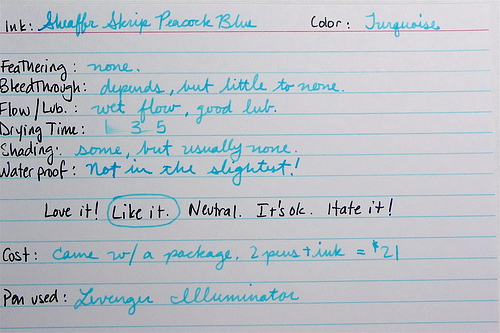 Ink: Sheaffer Skrip Peacock Blue Color: Turquoise
Feathering: none.
Bleedthrough: depends, but little to none.
Flow/Lub.: wet flow, good lub.
Drying Time: 1 3 5
Shading: some, but usually none.
Waterproof: Not in the slightest!
Love it! Like it. Neutral. It's ok. Hate it!
Cost: came w/ a package. 2 pens + ink = $21
Pen used: Levenger Illuminator